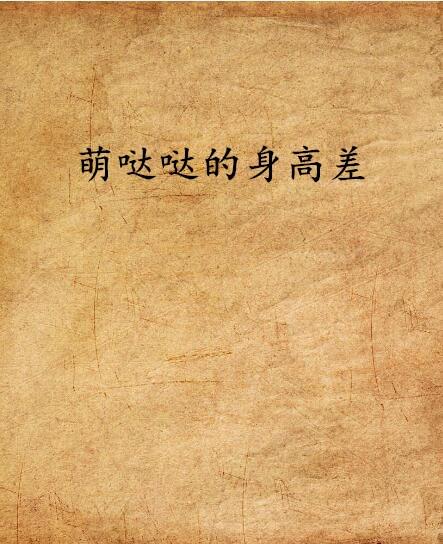 萌哒哒的身高差